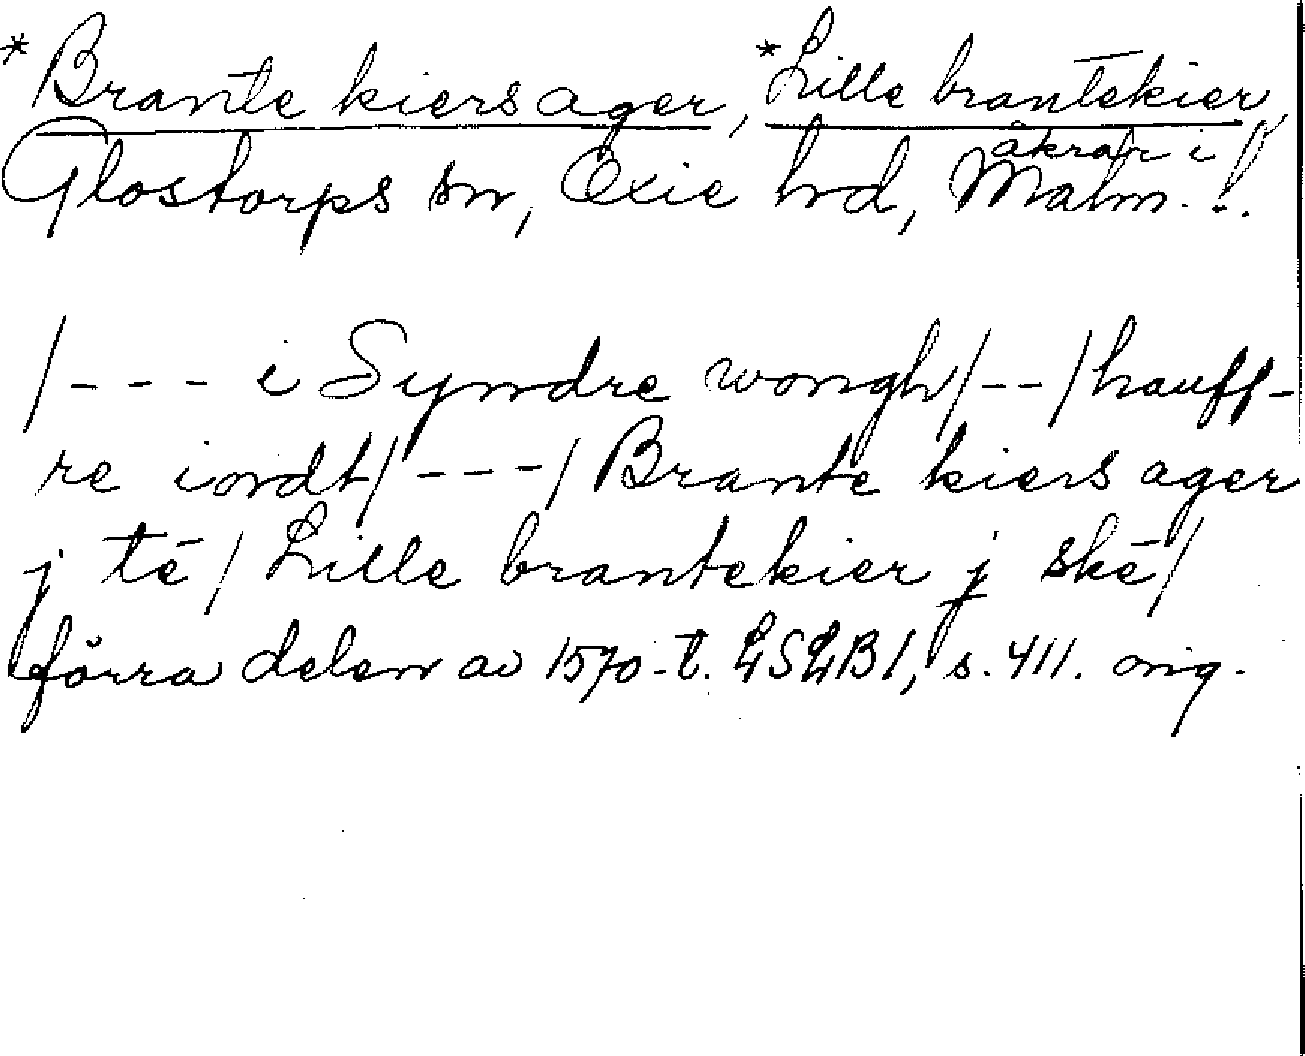 *Brante kiers ager, *Lille brantekier,
åkrar i
Glostorps sn, Oxie hd, Malm. l.
/--- i Syndre wongh/--/hauff-
re iordt/---/Brante kiers ager
j tē/Lille brantekier j skē/
förra delen av 1570-t. LSLB1, s. 411. orig.